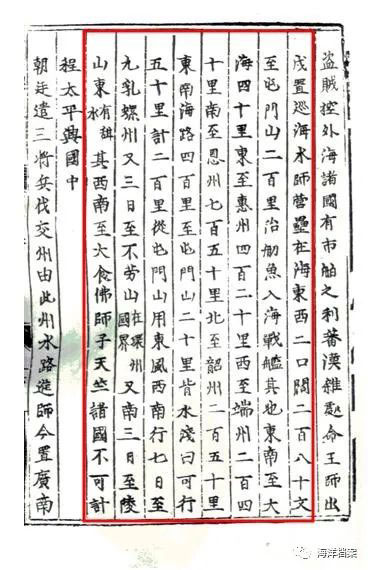 盗賊控外海諸國有市舶之利蕃漢雜處命王師出
戍置巡海水師營壘在海東西二口闊二百八十丈
至屯門山二百里治舠魚入海戰艦其也東南至大
海四十里東至惠州四百二十里西至端州二百四
十里南至恩州七百五十里北至韶州二百五十里
東南海路四百里至屯門山二十里皆水淺日可行
五十里計二百里從屯門山用東風西南行七日至
九乳螺州又三日至不勞山在環州國界又南三日至陵
山東有甜水其西南至大食佛師子天竺諸國不可計
程太平興國中
朝廷遣三將兵伐交州由此州水路進師今置廣南
海洋档案